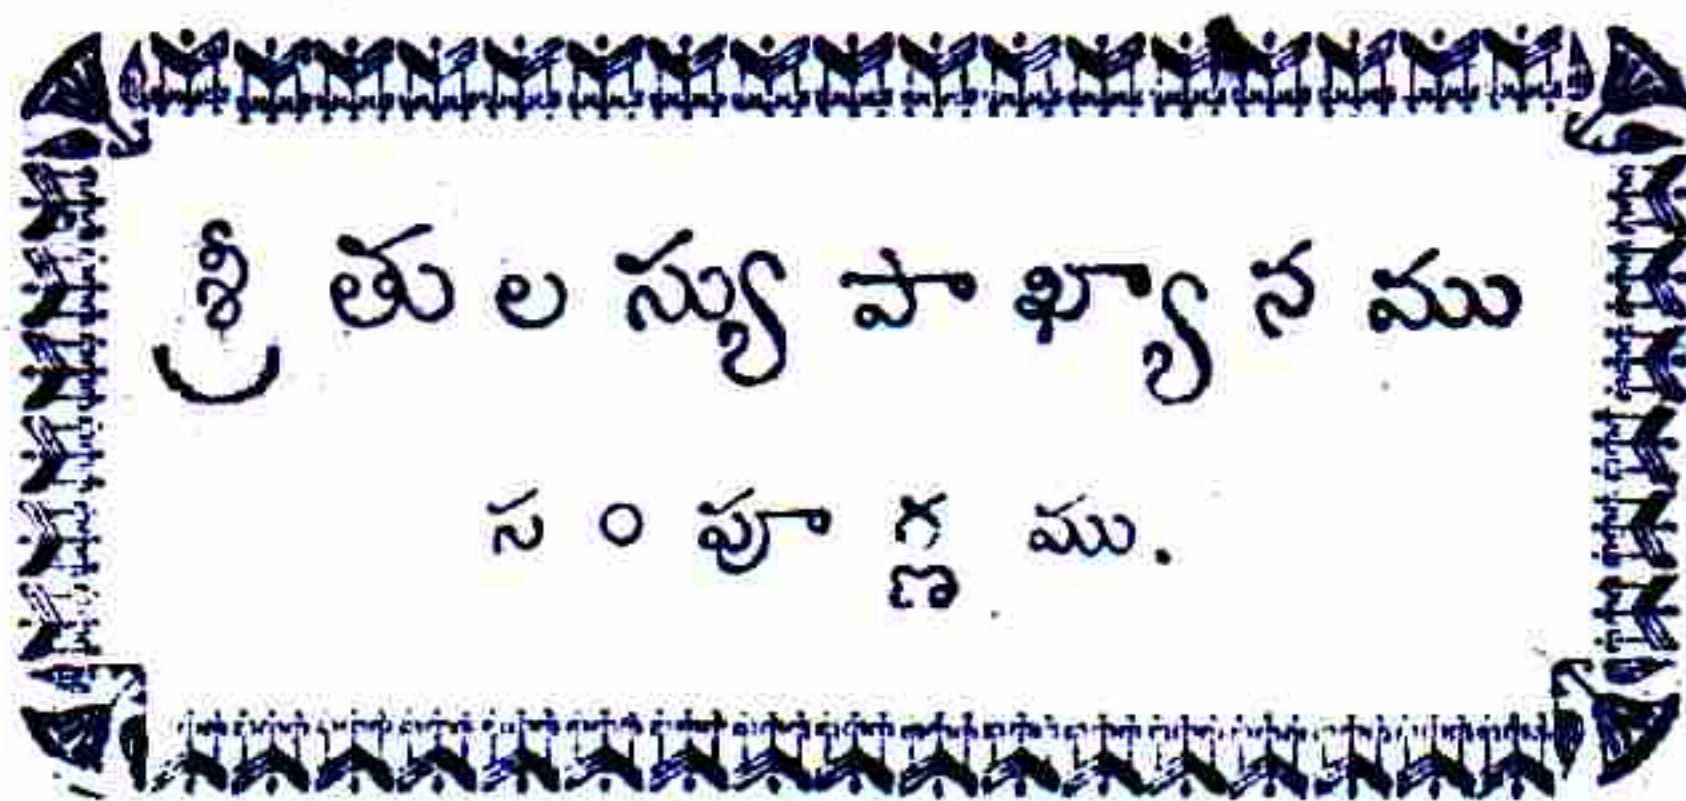 శ్రీ తు ల స్యు పా ఖ్యా న ము
స ం పూ ర్ణ ము.